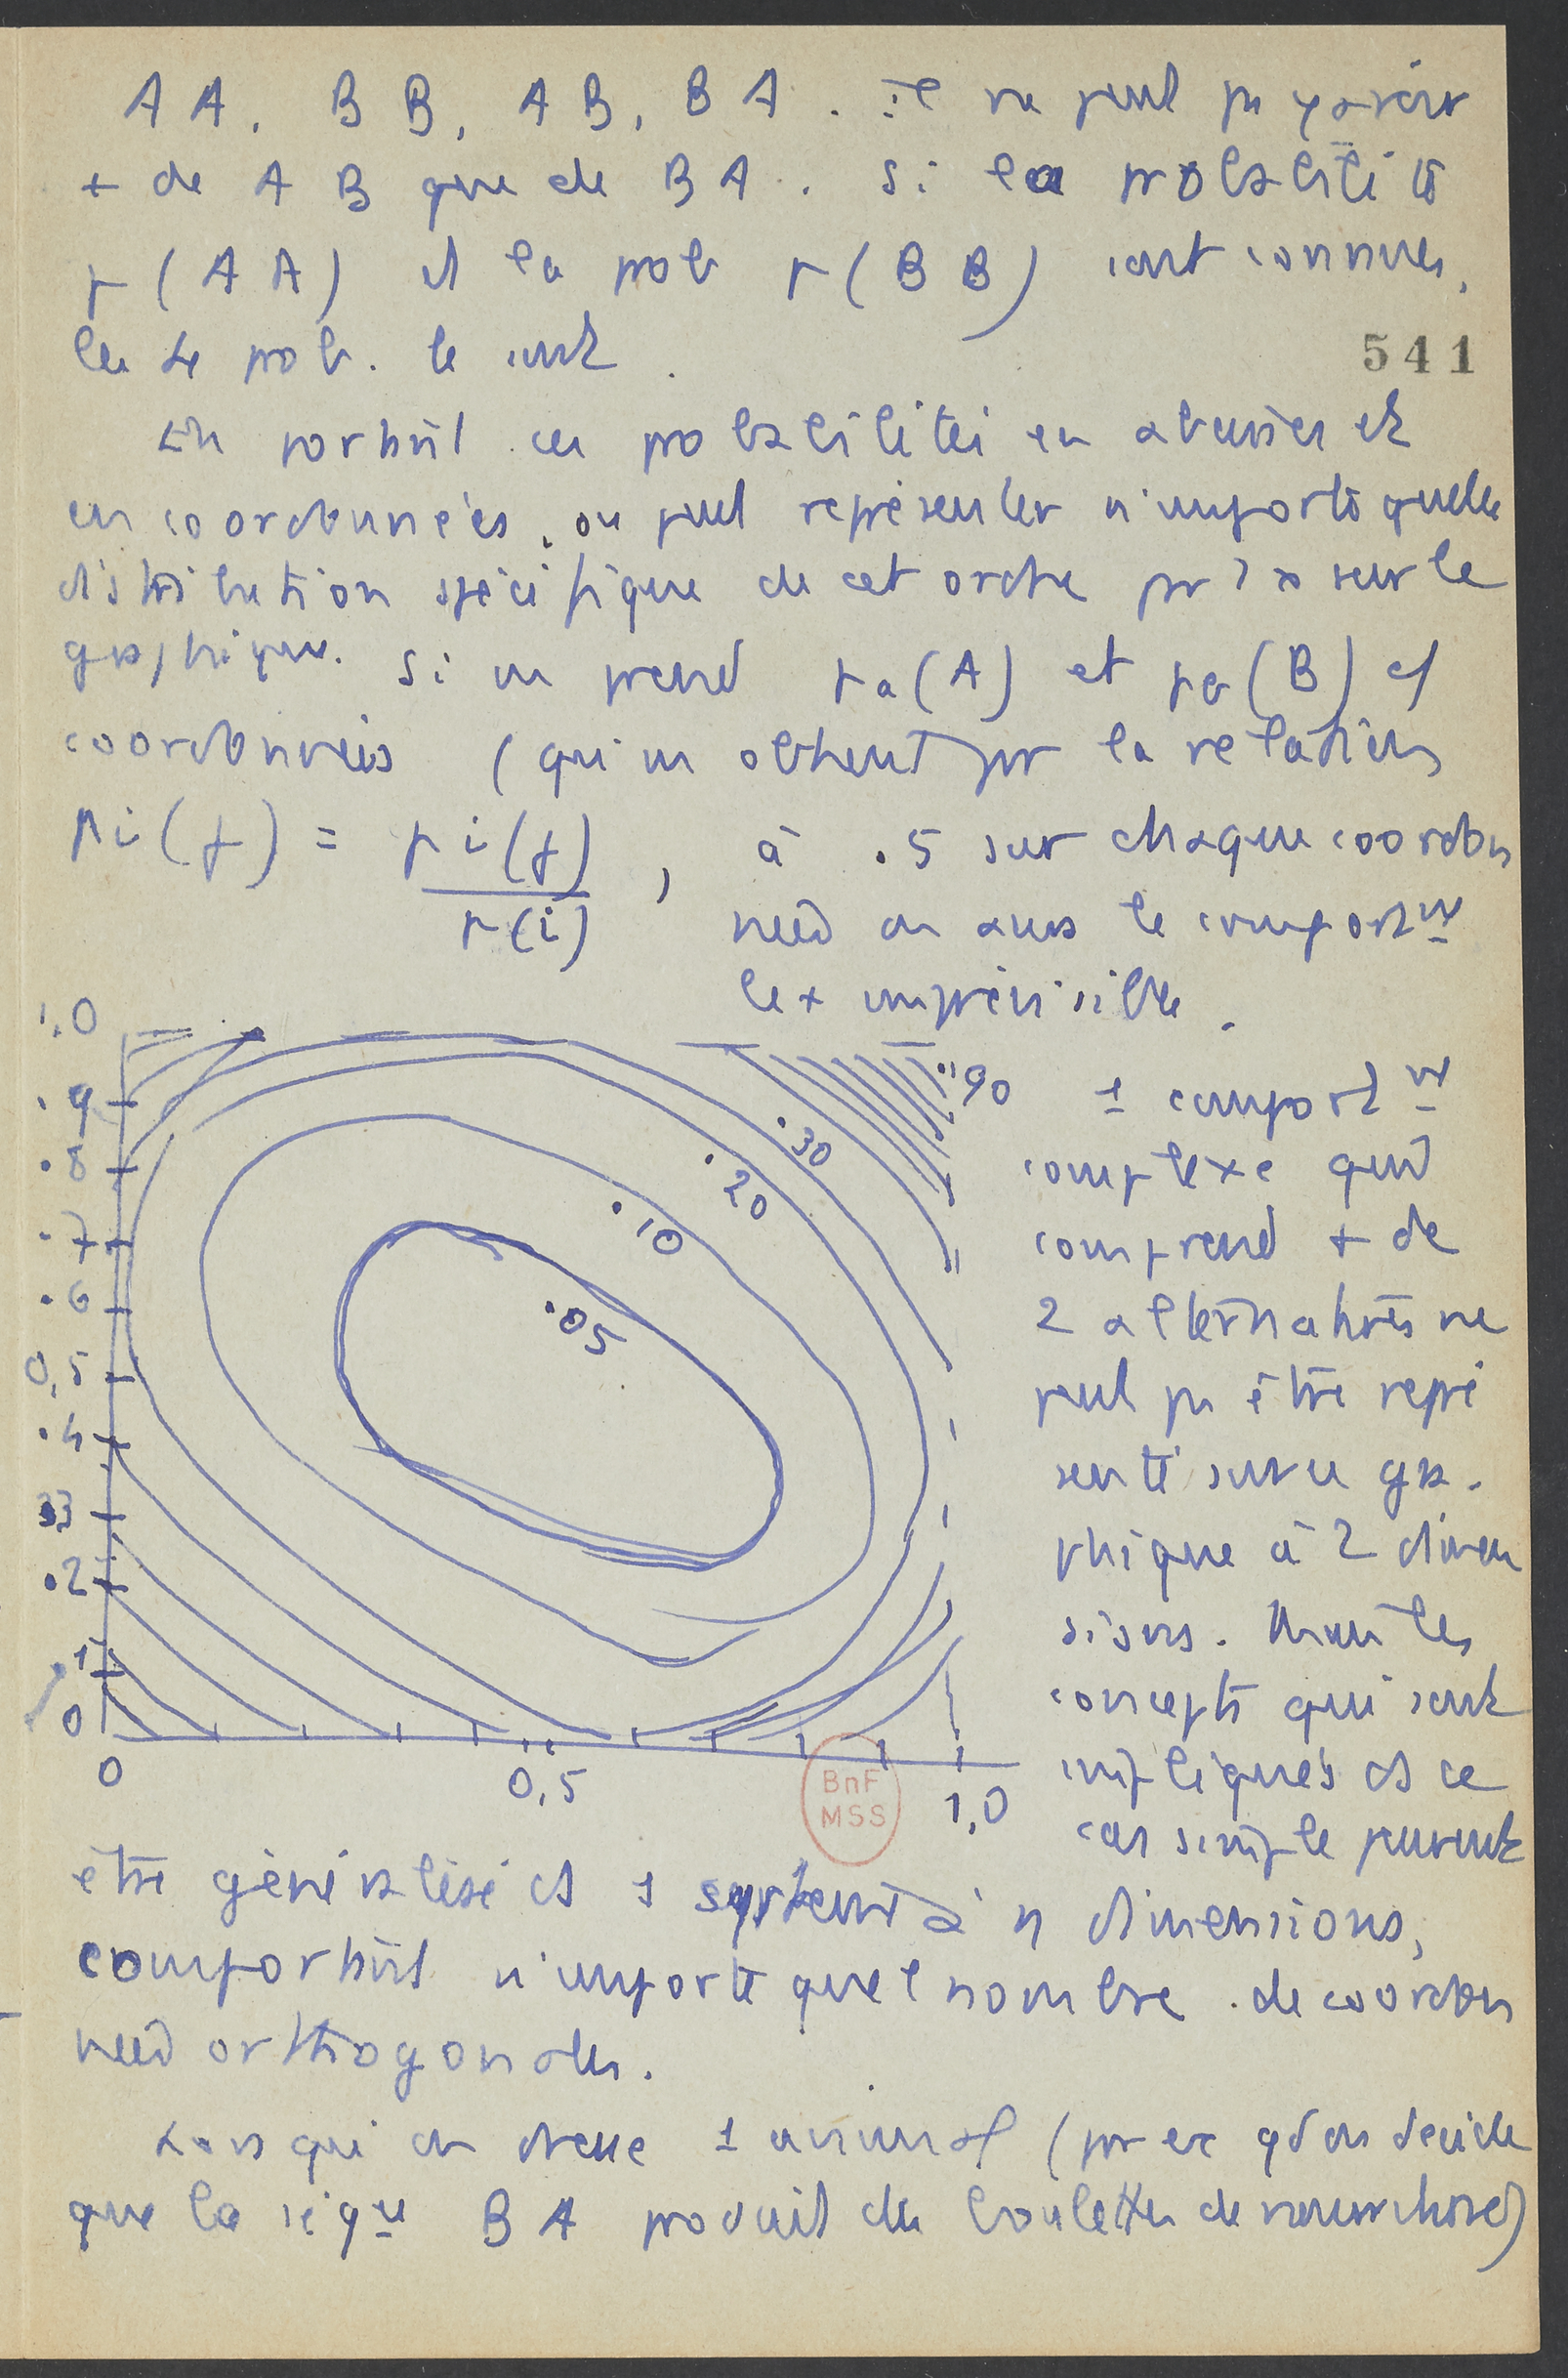 AA, BB, AB, BA. il ne peut pas y avoir
+ de AB que de BA. Si la probabilité
p(AA) et la prob p(BB) sont connues,
les 4 prob. le sont.
541
En portant ces probabilités en abscisses et
en coordonnées, on peut représenter n'importe quelle
distribution spécifique de cet ordre sur le
graphique. Si on prend pa(A) et pb(B) cf
coordonnées (qu'on obtient par la relation
pi(j) = pi(j) / p(i), à .5 sur chaque coordon
née on aura le comportnt
le + imprévisible.
1,0
.9
.8
.7
.6
0,5
.4
.2
.1
0
0
0,5
1,0
.90
.30
.20
.10
.05
1 comportnt
complexe qui
comprend + de
2 alternatives ne
peut pas être repré
senté sur ce gra-
phique à 2 dimen
sions. Mais les
concepts qui sont
impliqués ds ce
cas simple peuvent
BnF
MSS
être généralisé ds 1 système à n dimensions,
comportant n'importe quel nombre de coordon
nées orthogonales.
Lorsqu'on dresse 1 animal (par ex qd on décide
que la séque BA produit des boulettes de nourriture)